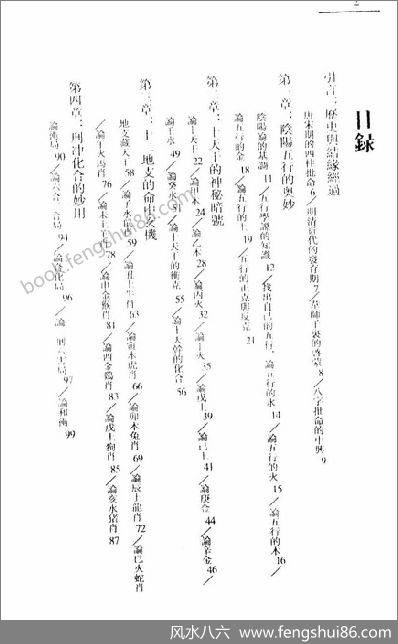 2
目錄
引言：歷史與結緣經過
唐宋期的四柱批命 6／明清近代的發育期 7／草師手裏的啓蒙 8／八字批命的中興 9
第一章：陰陽五行的奧妙
陰陽論的基調 11／五行學說的知識 12／找出自己的五行，論五行的水 14／論五行的火 15／論五行的木 16／
論五行的金 18／論五行的土 19／五行的正克與反克 21
第二章：十天干的神秘暗號
論十天干 22／論甲木 24／論乙木 28／論丙火 32／論丁火 35／論戊土 39／論己土 41／論庚金 44／論辛金 46／
論壬水 49／論癸水 51／論十天干的衝克 55／論十天幹的化合 56
第三章：十二地支的命中玄機
地支藏人士 58／論子水鼠肖 59／論丑土牛肖 63／論寅木虎肖 66／論卯木兔肖 69／論辰土龍肖 72／論巳火蛇肖
／論午火馬肖 76／論未土羊肖 78／論申金猴肖 81／論酉金鷄肖 83／論戌土狗肖 85／論亥水猪肖 87
第四章：刑沖化合的妙用
論衝局 90／論六合三合局 94／論會化局 96／論三刑六害局 97／論相衝 99
book.fengshui86.com
风水八六 www.fengshui86.com